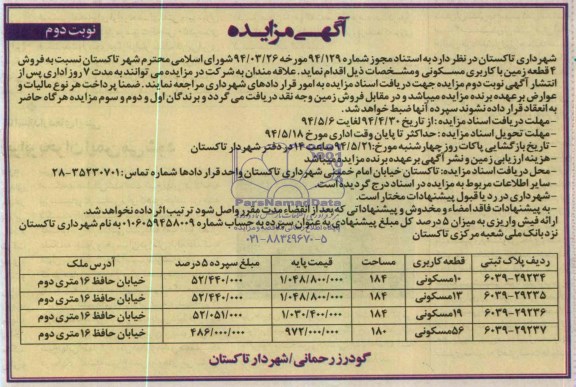 آگهی مزایده
نوبت دوم
شهرداری تاکستان در نظر دارد به استناد مجوز شماره ۹۴/۱۲۹ مورخه ۹۴/۰۳/۲۶ شورای اسلامی محترم شهر تاکستان نسبت به فروش
۴ قطعه زمین با کاربری مسکونی و مشخصات ذیل اقدام نماید. علاقه مندان به شرکت در مزایده می توانند به مدت ۷ روز اداری پس از
انتشار آگهی نوبت دوم مزایده جهت دریافت اسناد مزایده به امور قراردادهای شهرداری مراجعه نمایند. ضمنا پرداخت هر نوع مالیات و
عوارض بر عهده برنده مزایده میباشد و در مقابل فروش زمین وجه نقد دریافت می گردد و برندگان اول و دوم و سوم مزایده هرگاه حاضر
به انعقاد قرار داده نشوند سپرده آنها ضبط خواهد شد.
-مهلت دریافت اسناد مزایده: از تاریخ ۹۴/۴/۳۰ لغایت ۹۴/۵/۶
-مهلت تحویل اسناد مزایده: حداکثر تا پایان وقت اداری مورخ ۹۴/۵/۱۸
-تاریخ بازگشایی پاکات روز چهارشنبه مورخ: ۹۴/۵/۲۱ ساعت ۱۴ در دفتر شهردار تاکستان
-هزینه ارزیابی زمین و نشر آگهی بر عهده برنده مزایده میباشد
-محل دریافت اسناد مزایده: تاکستان خیابان امام خمینی شهرداری تاکستان واحد قراردادها شماره تماس: ۳۵۲۳۰۷۰۱-۲۸
-سایر اطلاعات مربوط به مزایده در اسناد درج گردیده است.
-شهرداری در رد یا قبول پیشنهادات مختار است.
به پیشنهادات فاقد امضاء و مخدوش و پیشنهاداتی که بعد از انقضاء مدت مقرر واصل شود ترتیب اثر داده نخواهد شد.
ارائه فیش واریزی به میزان ۵ درصد کل مبلغ پیشنهادی به عنوان سپرده به حساب شماره ۰۱۰۶۰۵۹۴۵۸۰۰۹ به نام شهرداری تاکستان
نزد بانک ملی شعبه مرکزی تاکستان
ParsNamadData
۰۲۱-۸۸۳۴۹۶۷۰-۵
ردیف پلاک ثبتی قطعه کاربری مساحت قیمت پایه مبلغ سپرده ۵ درصد آدرس ملک
۶۰۳۹-۲۹۲۳۴ ۱۰ مسکونی ۱۸۴ ۱/۰۴۸/۸۰۰/۰۰۰ ۵۲/۴۴۰/۰۰۰ خیابان حافظ ۱۶ متری دوم
۶۰۳۹-۲۹۲۳۵ ۱۳ مسکونی ۱۸۴ ۱/۰۴۸/۸۰۰/۰۰۰ ۵۲/۴۴۰/۰۰۰ خیابان حافظ ۱۶ متری دوم
۶۰۳۹-۲۹۲۳۶ ۱۹ مسکونی ۱۸۴ ۱/۰۳۰/۴۰۰/۰۰۰ ۵۲/۰۵۱/۰۰۰ خیابان حافظ ۱۶ متری دوم
۶۰۳۹-۲۹۲۳۷ ۵۶ مسکونی ۱۸۰ ۹۷۲/۰۰۰/۰۰۰ ۴۸۶/۰۰۰/۰۰۰ خیابان حافظ ۱۶ متری دوم
گودرز رحمانی/شهردار تاکستان